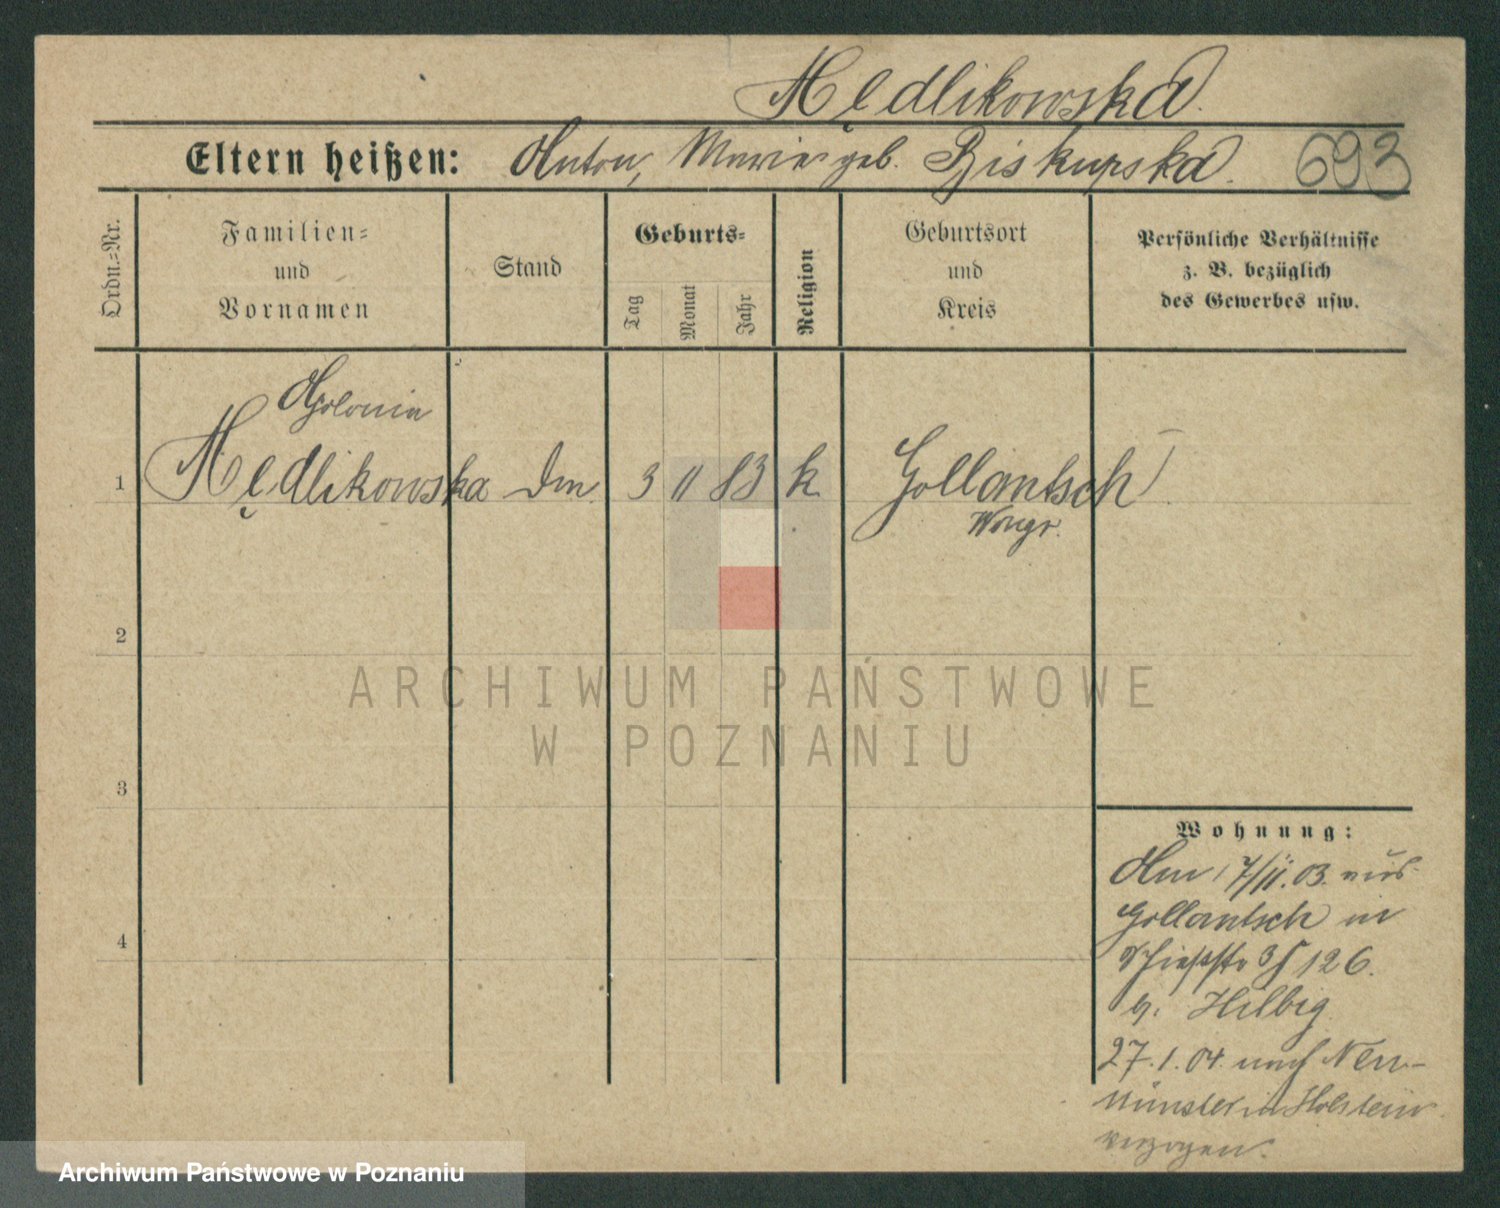 Mędlikowska.
Eltern heißen: Anton, Marie geb. Biskupska. 693
Ordn.-Nr.
Familien-
und
Vornamen
Stand
Geburts-
Tag
Monat
Jahr
Religion
Geburtsort
und
Kreis
Persönliche Verhältnisse
z. B. bezüglich
des Gewerbes usw.
Apolonia
1 Mędlikowska 3 11 83 k Gollantsch
Wongr.
2
3
4
Wohnung:
Am 17/11.03. aus
Gollantsch in
126.
b. Hilbig
27.1.04. nach Neu-
münster in Holstein
verzogen.
ARCHIWUM PAŃSTWOWE
W POZNANIU
Archiwum Państwowe w Poznaniu